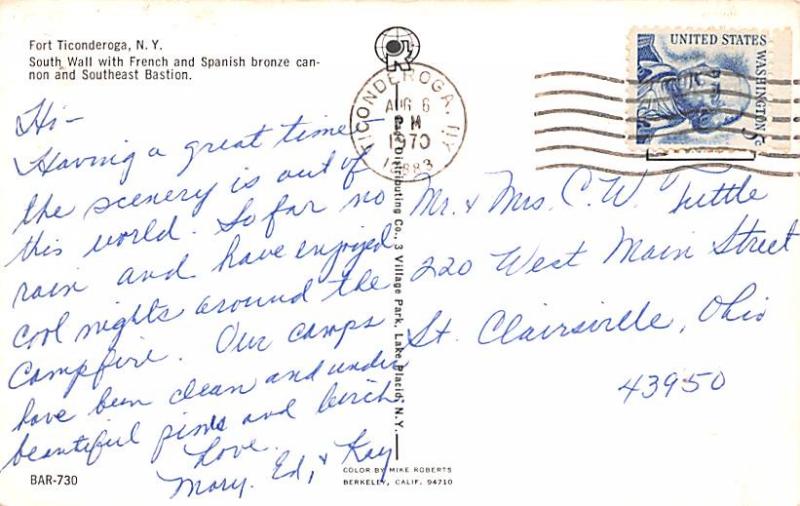 Fort Ticonderoga, N. Y.
South Wall with French and Spanish bronze can-
non and Southeast Bastion.
Hi-
Having a great time-
the scenery is out of
this world. So far no
rain and have enjoyed
cool nights around the
campfire. Our camps
have been clean and under
beautiful pines and birch
Love.
Mary, Ed, & Kay
BAR-730
TICONDEROGA, NY
AUG 6
PM
1970
12883
Distributing Co., 3 Village Park, Lake Placid, N. Y.
COLOR BY MIKE ROBERTS
BERKELEY, CALIF. 94710
UNITED STATES
WASHINGTON 5c
Mr. & Mrs. C. W. Tuttle
220 West Main Street
St. Clairsville, Ohio
43950